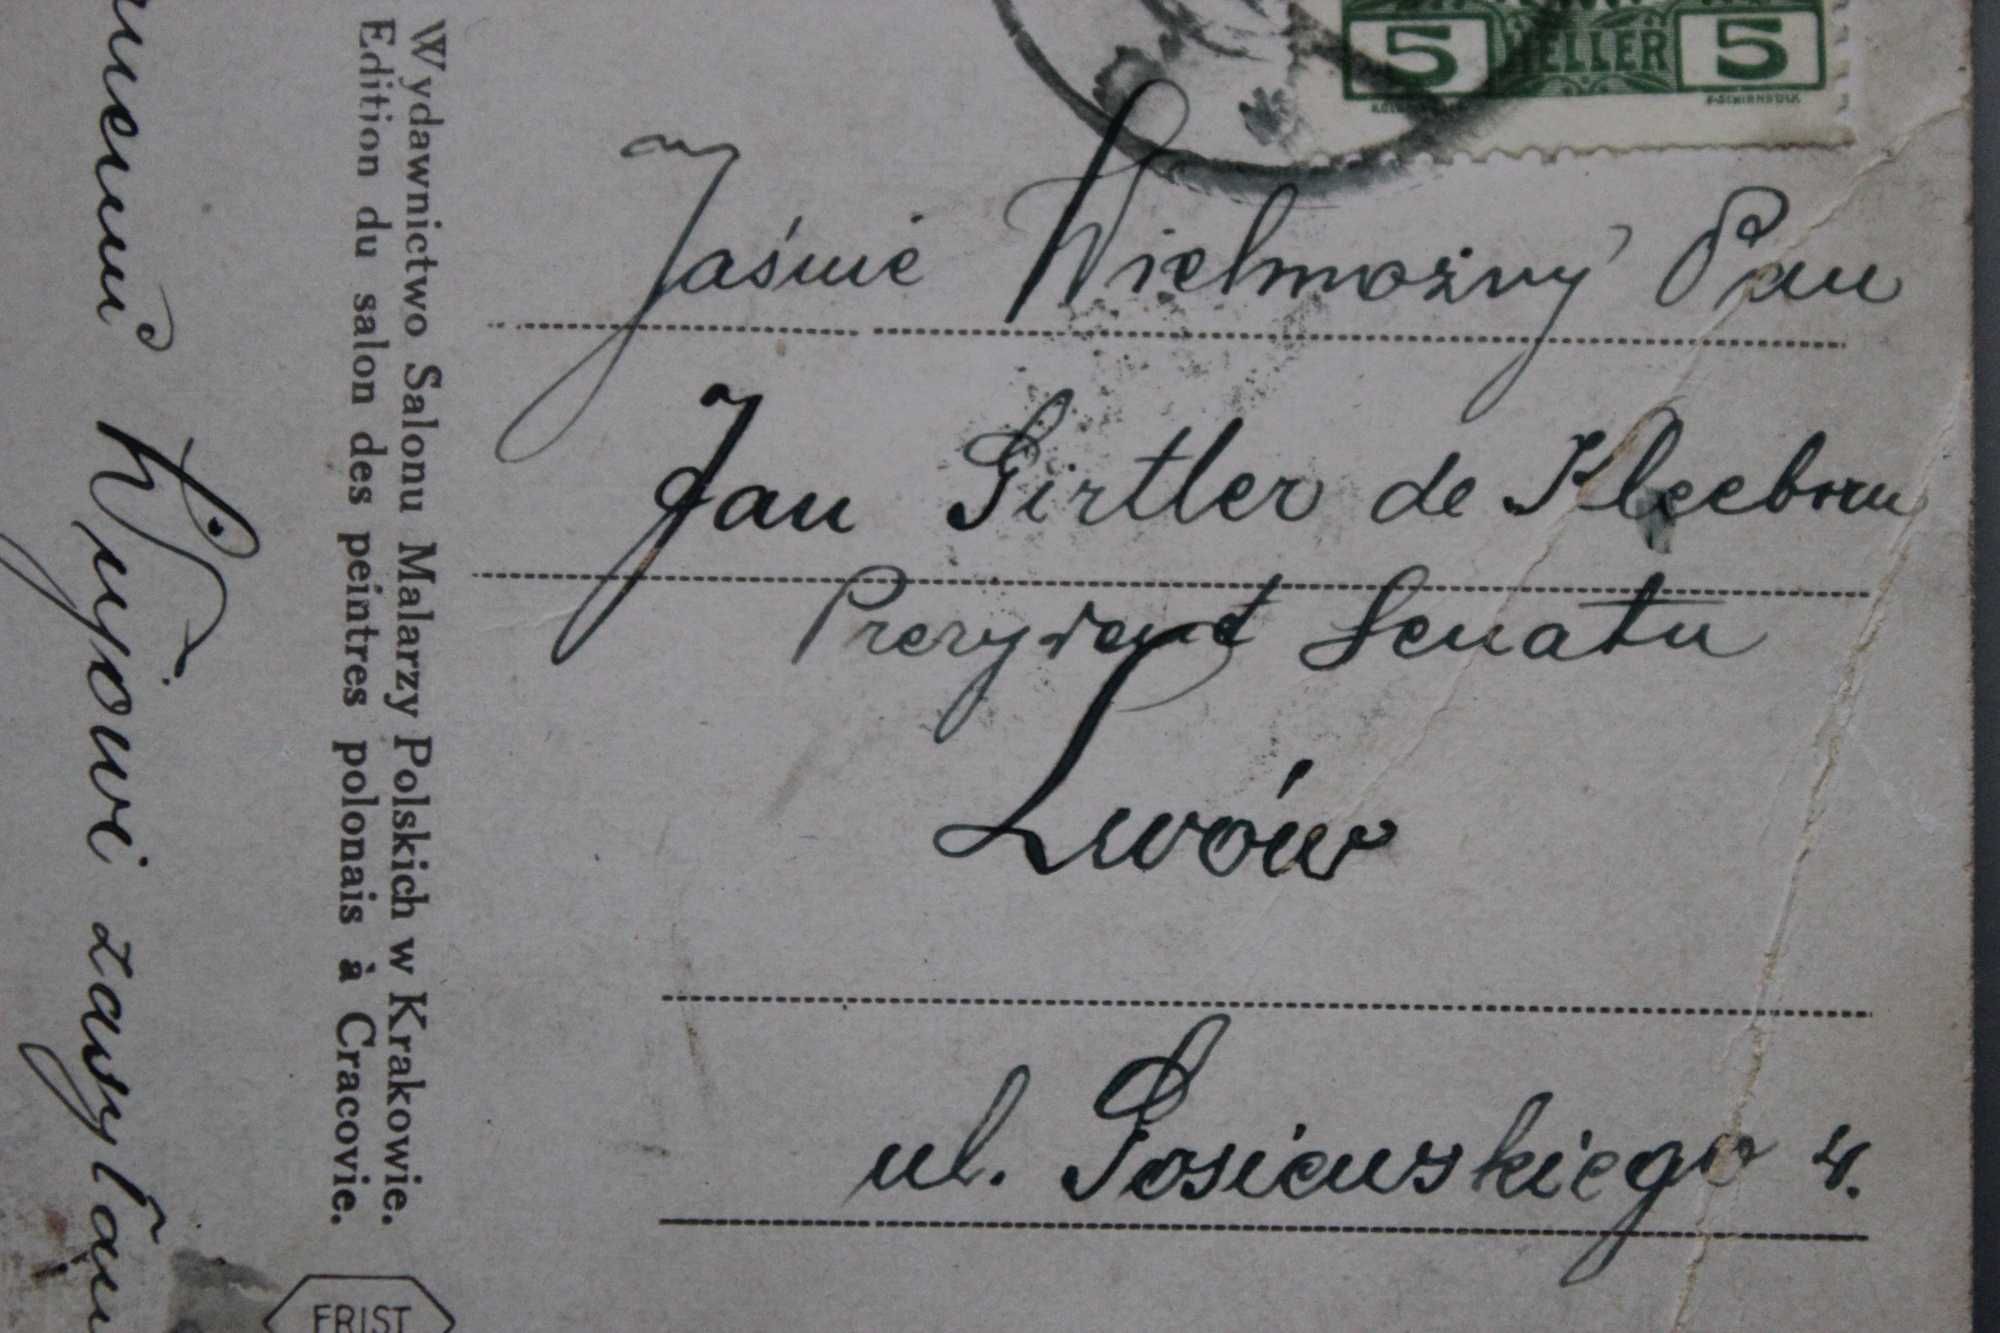 5 HELLER 5
Jaśnie Wielmożny Pan
Jan Girtler de Kleeborn
Prezydent Senatu
Lwów
ul. Gosiewskiego 4.
Wydawnictwo Salonu Malarzy Polskich w Krakowie.
Edition du salon des peintres polonais à Cracovie.
Wujowi zasyłam
FRIST